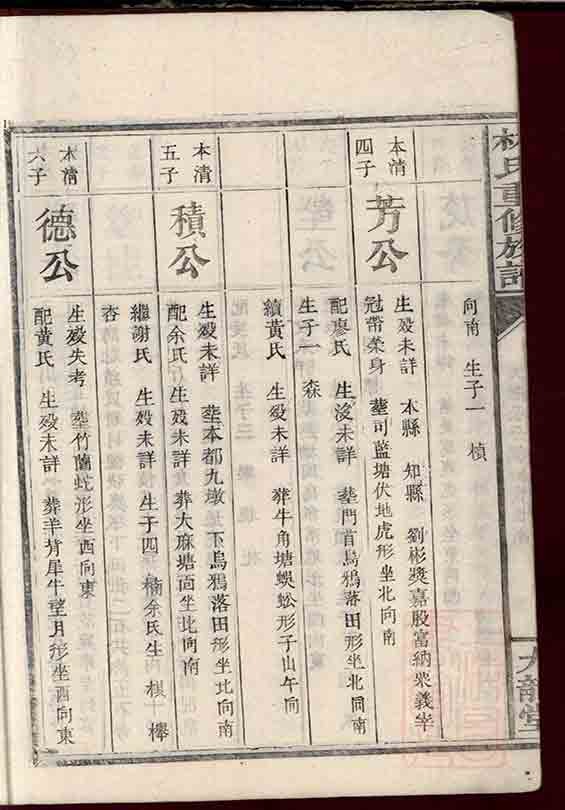 林氏重修族譜
九龍堂
向南 生子一 楨
本清
四子
芳公
生殁未詳 本縣 知縣 劉彬獎嘉殷富納粟義宰
冠帶榮身 塟司監塘伏地虎形坐北向南
配廖氏 生没未詳 塟門首烏鴉落田形坐北向南
生子一 森
續黄氏 生殁未詳 葬牛角塘蜈蚣形子山午向
本清
五子
積公
生殁未詳 塟本都九墩 下烏鴉落田形坐北向南
配余氏 生殁未詳 葬大麻塘面坐北向南
繼謝氏 生殁未詳 生子四 楠余氏生 棋 十 檡
杏
本清
六子
德公
生殁失考 塟竹蘭蛇形坐西向東
配黄氏 生殁未詳 葬羊背犀牛望月形坐西向東